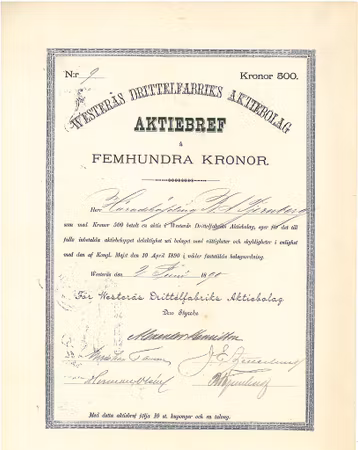 N:r 9 Kronor 500.
WESTERÅS DRITTELFABRIKS AKTIEBOLAG
AKTIEBREF
å
FEMHUNDRA KRONOR.
Herr Häradshöfding
som med Kronor 500 betalt en aktie i Westerås Drittelfabriks Aktiebolag, eger för det till
fullo inbetalda aktiebeloppet delaktighet uti bolaget med rättigheter och skyldigheter i enlighet
med den af Kongl. Maj:t den 10 April 1890 i nåder fastställda bolagsordning.
Westerås den 2 Juni 1890
För Westerås Drittelfabriks Aktiebolag
Dess Styrelse
Med detta aktiebref följa 10 st. kuponger och en talong.